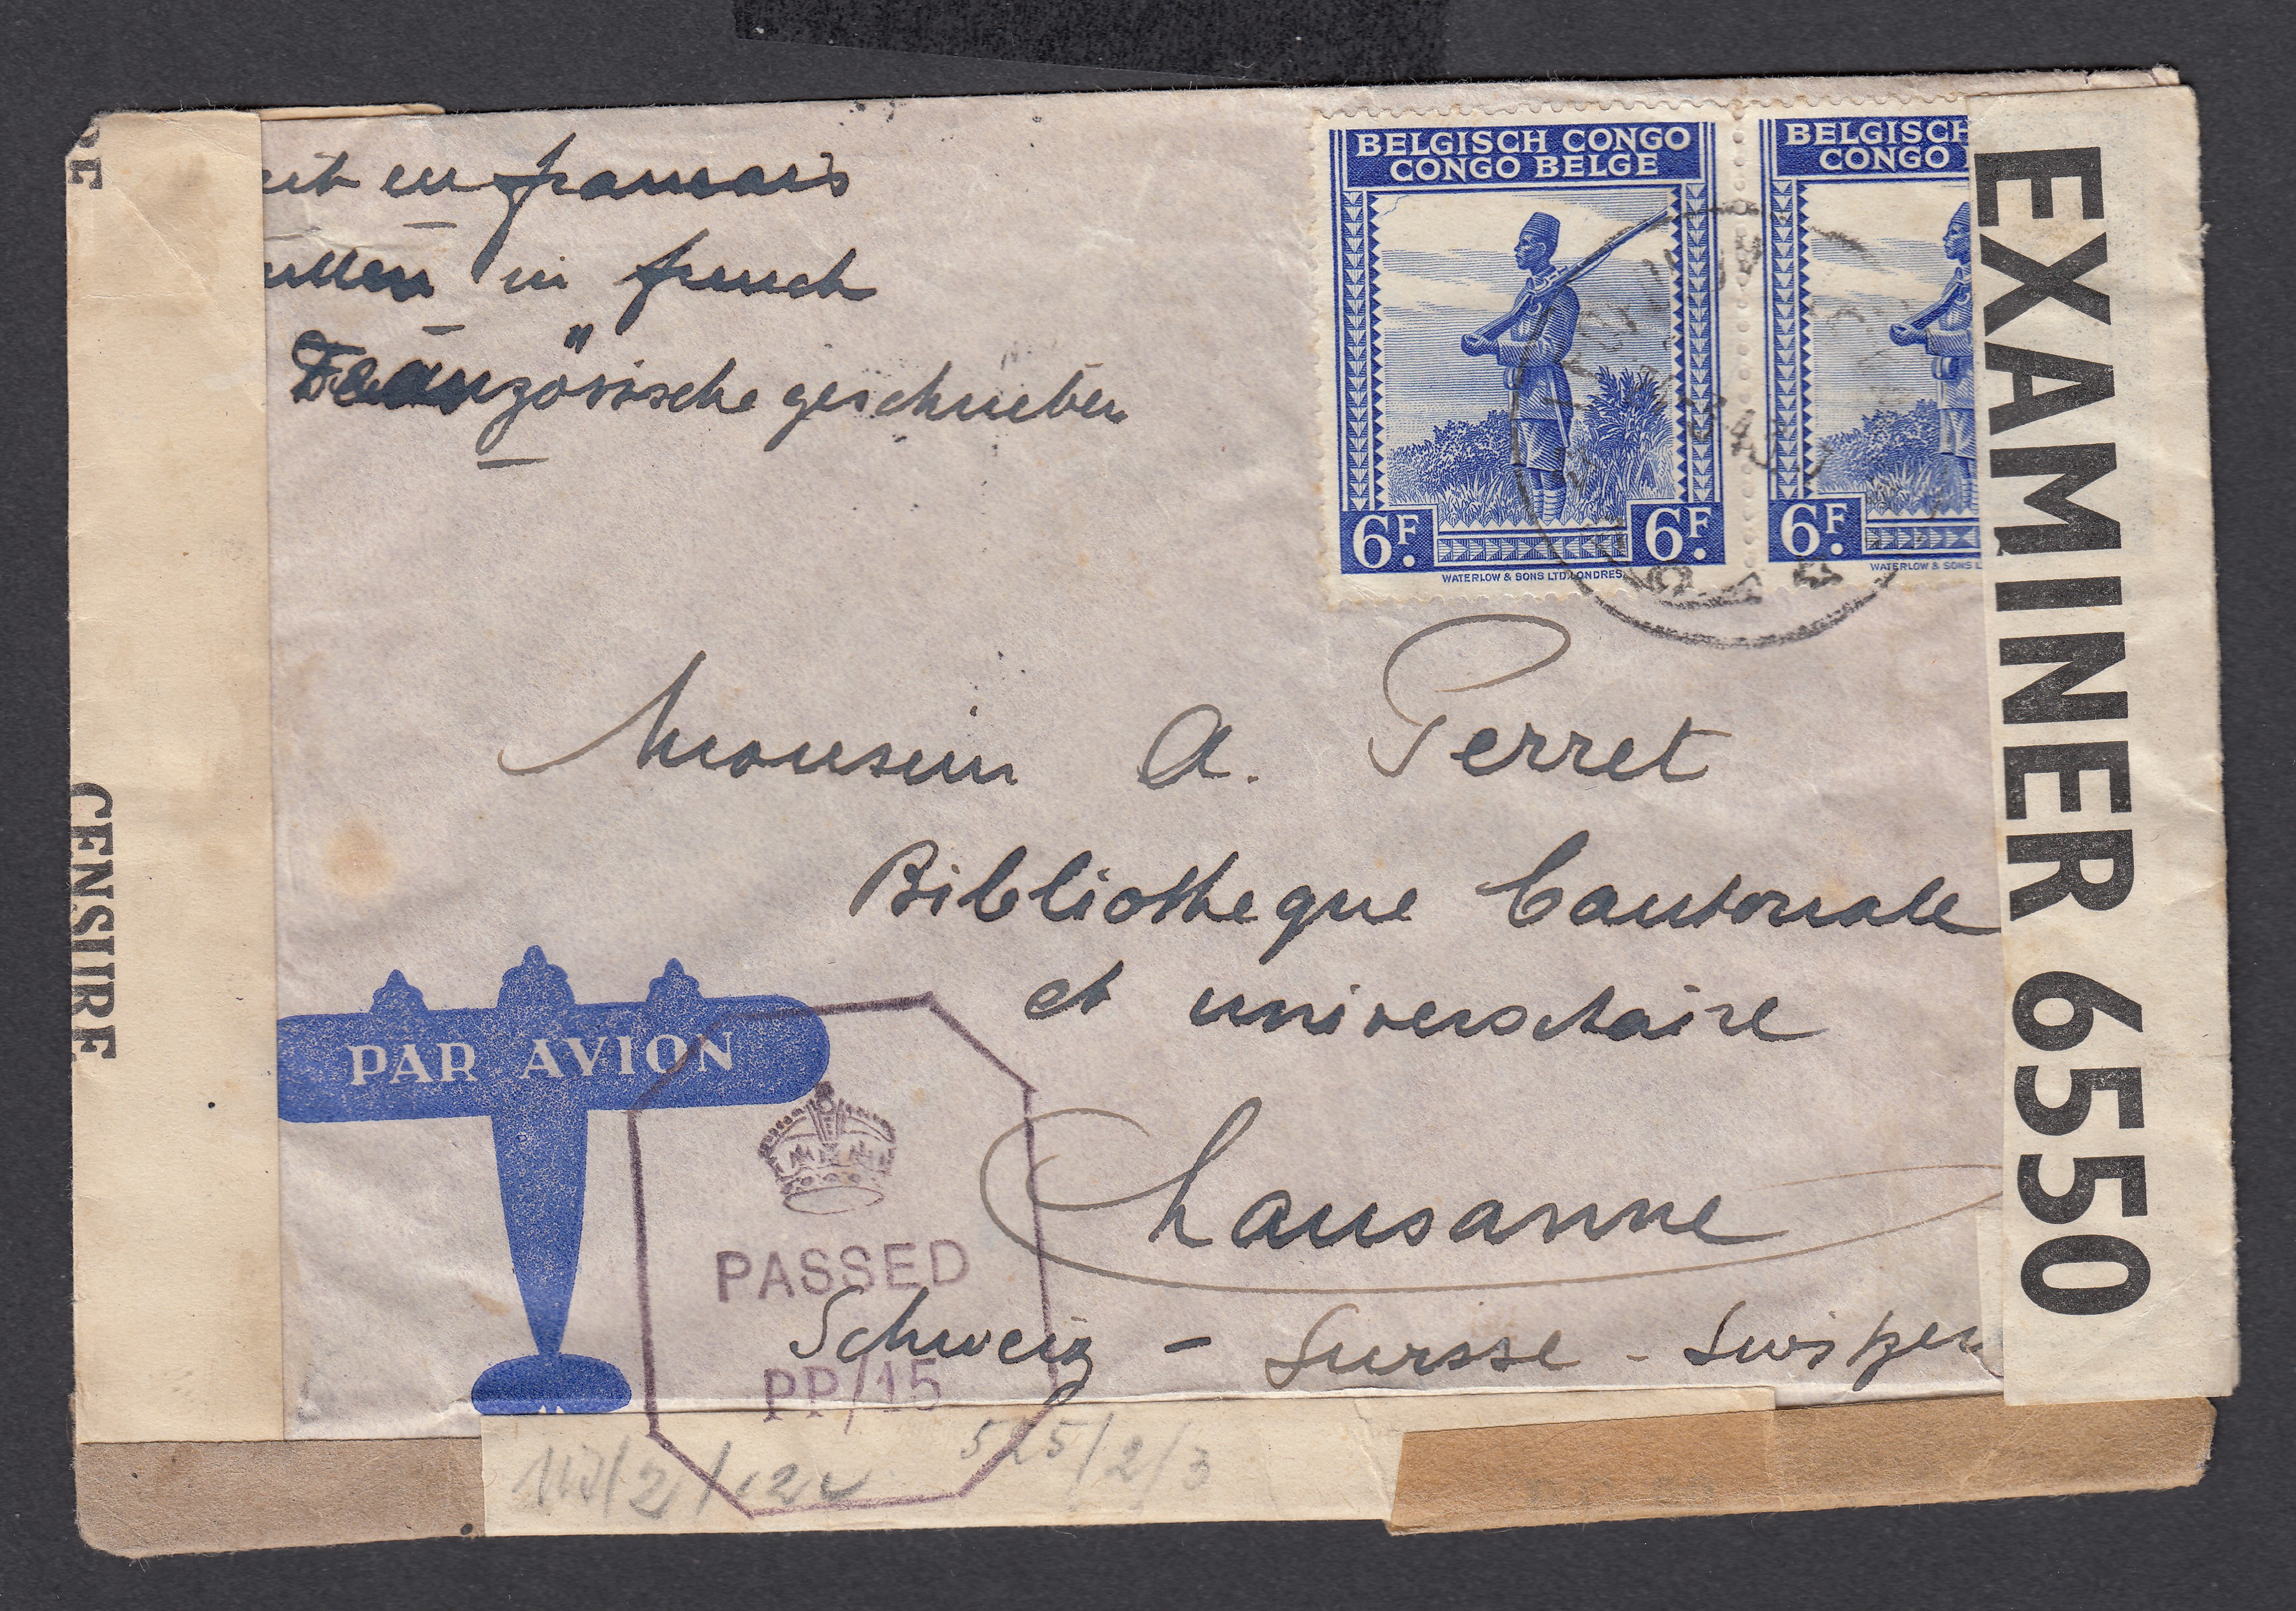 en français
in french
Französische geschrieben
BELGISCH CONGO
CONGO BELGE
6F. 6F.
WATERLOW & SONS LTD. LONDRES
BELGISCH
CONGO
6F.
WATERLOW & SONS L
EXAMINER 6550
CENSURE
Monsieur A. Perret
Bibliotheque Cantonale
et universitaire
Lausanne
Schweiz - Suisse - Switzer
PAR AVION
PASSED
PP/15
525/2/3